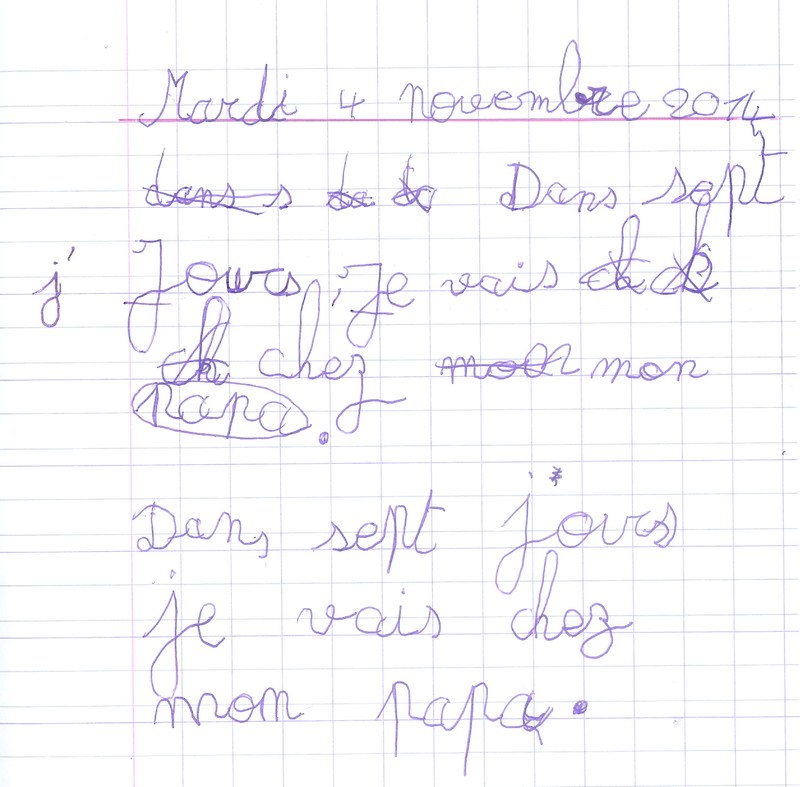 Mardi 4 novembre 2014
dans s da da Dans sept
j' Jours, Je vais ch ch
ch chez mon mon
papa.
Dans sept jours
je vais chez
mon papa.